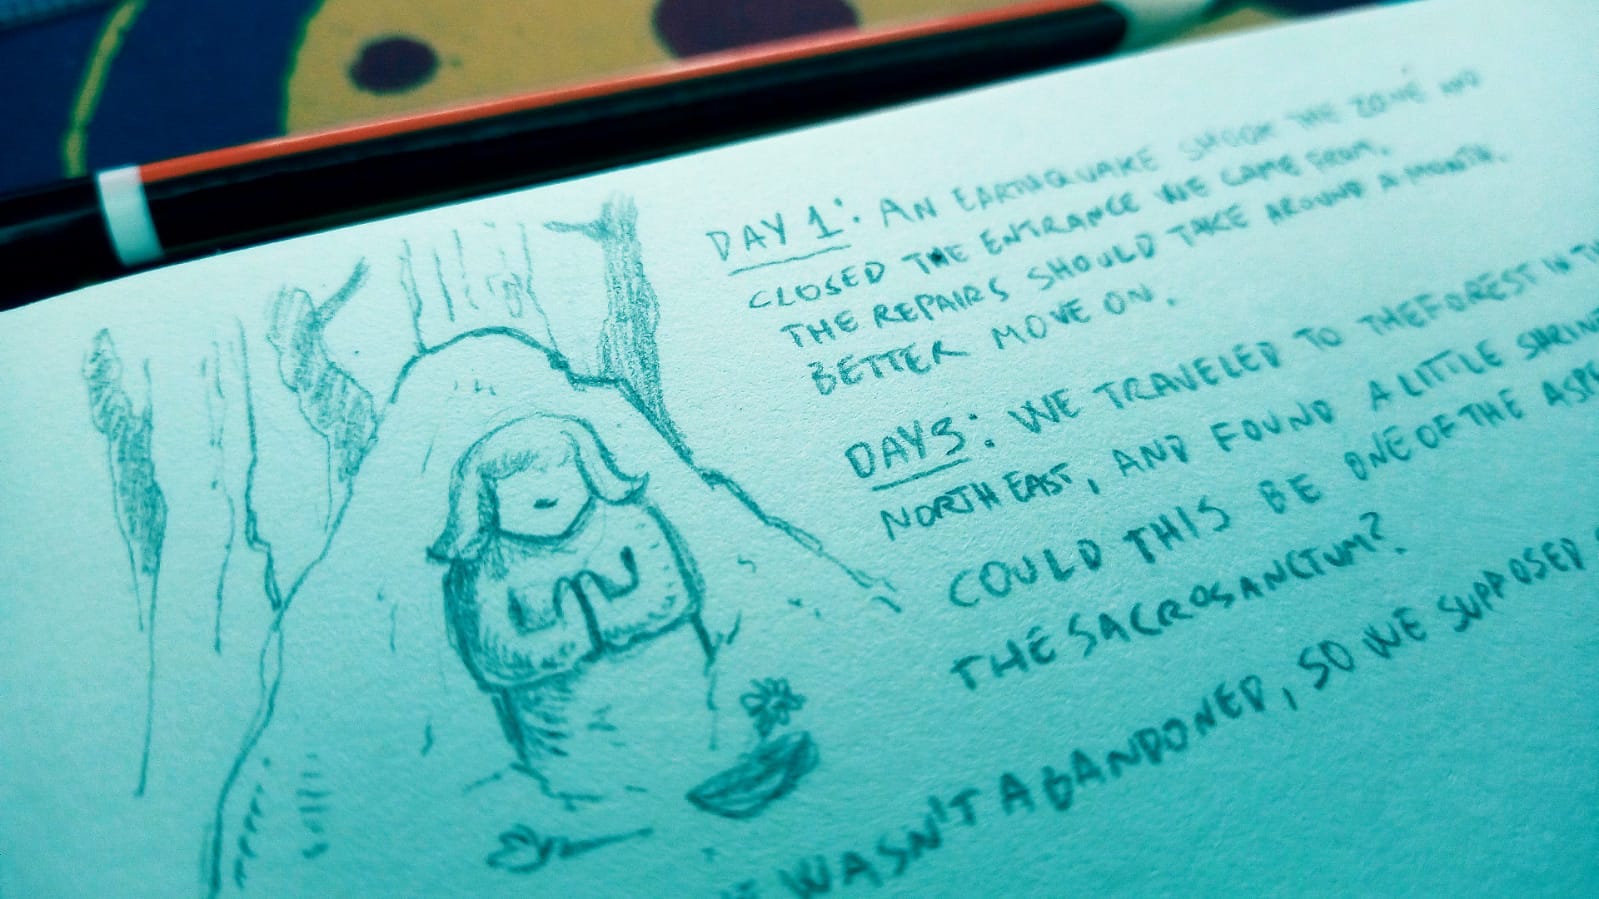 DAY 1: AN EARTHQUAKE SHOOK THE ZONE AND
CLOSED THE ENTRANCE WE CAME FROM.
THE REPAIRS SHOULD TAKE AROUND A MONTH.
BETTER MOVE ON.
DAY 3: WE TRAVELED TO THE FOREST IN
NORTH EAST, AND FOUND A LITTLE SHRINE
COULD THIS BE ONE OF THE
THE SACROSANCTUM?
WASN'T ABANDONED, SO WE SUPPOSED